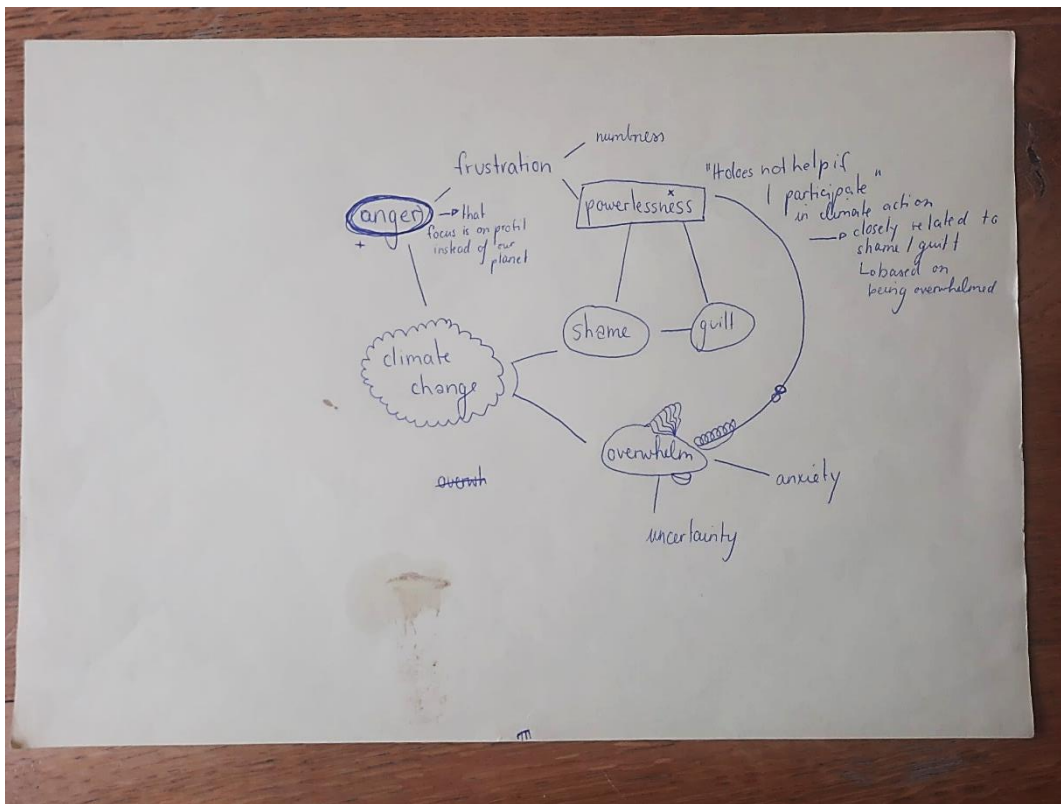 numbness
frustration
anger
→ that
focus is on profit
instead of our
planet
+
powerlessness
x
"It does not help if
I participate"
in climate action
→ closely related to
shame / guilt
↳ based on
being overwhelmed
shame
guilt
climate
change
overwhelm
anxiety
uncertainty
overwh